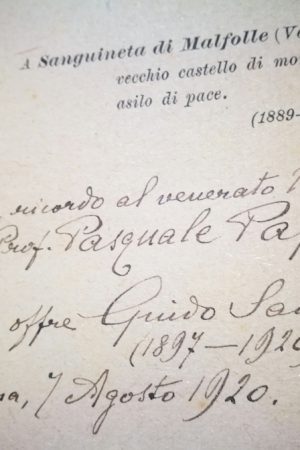 A Sanguineta di Malfolle (Ve
vecchio castello di mo
asilo di pace.
(1889-
ricordo al venerato
Prof. Pasquale Pa
offre Guido Sa
(1897-192
7 Agosto 1920.